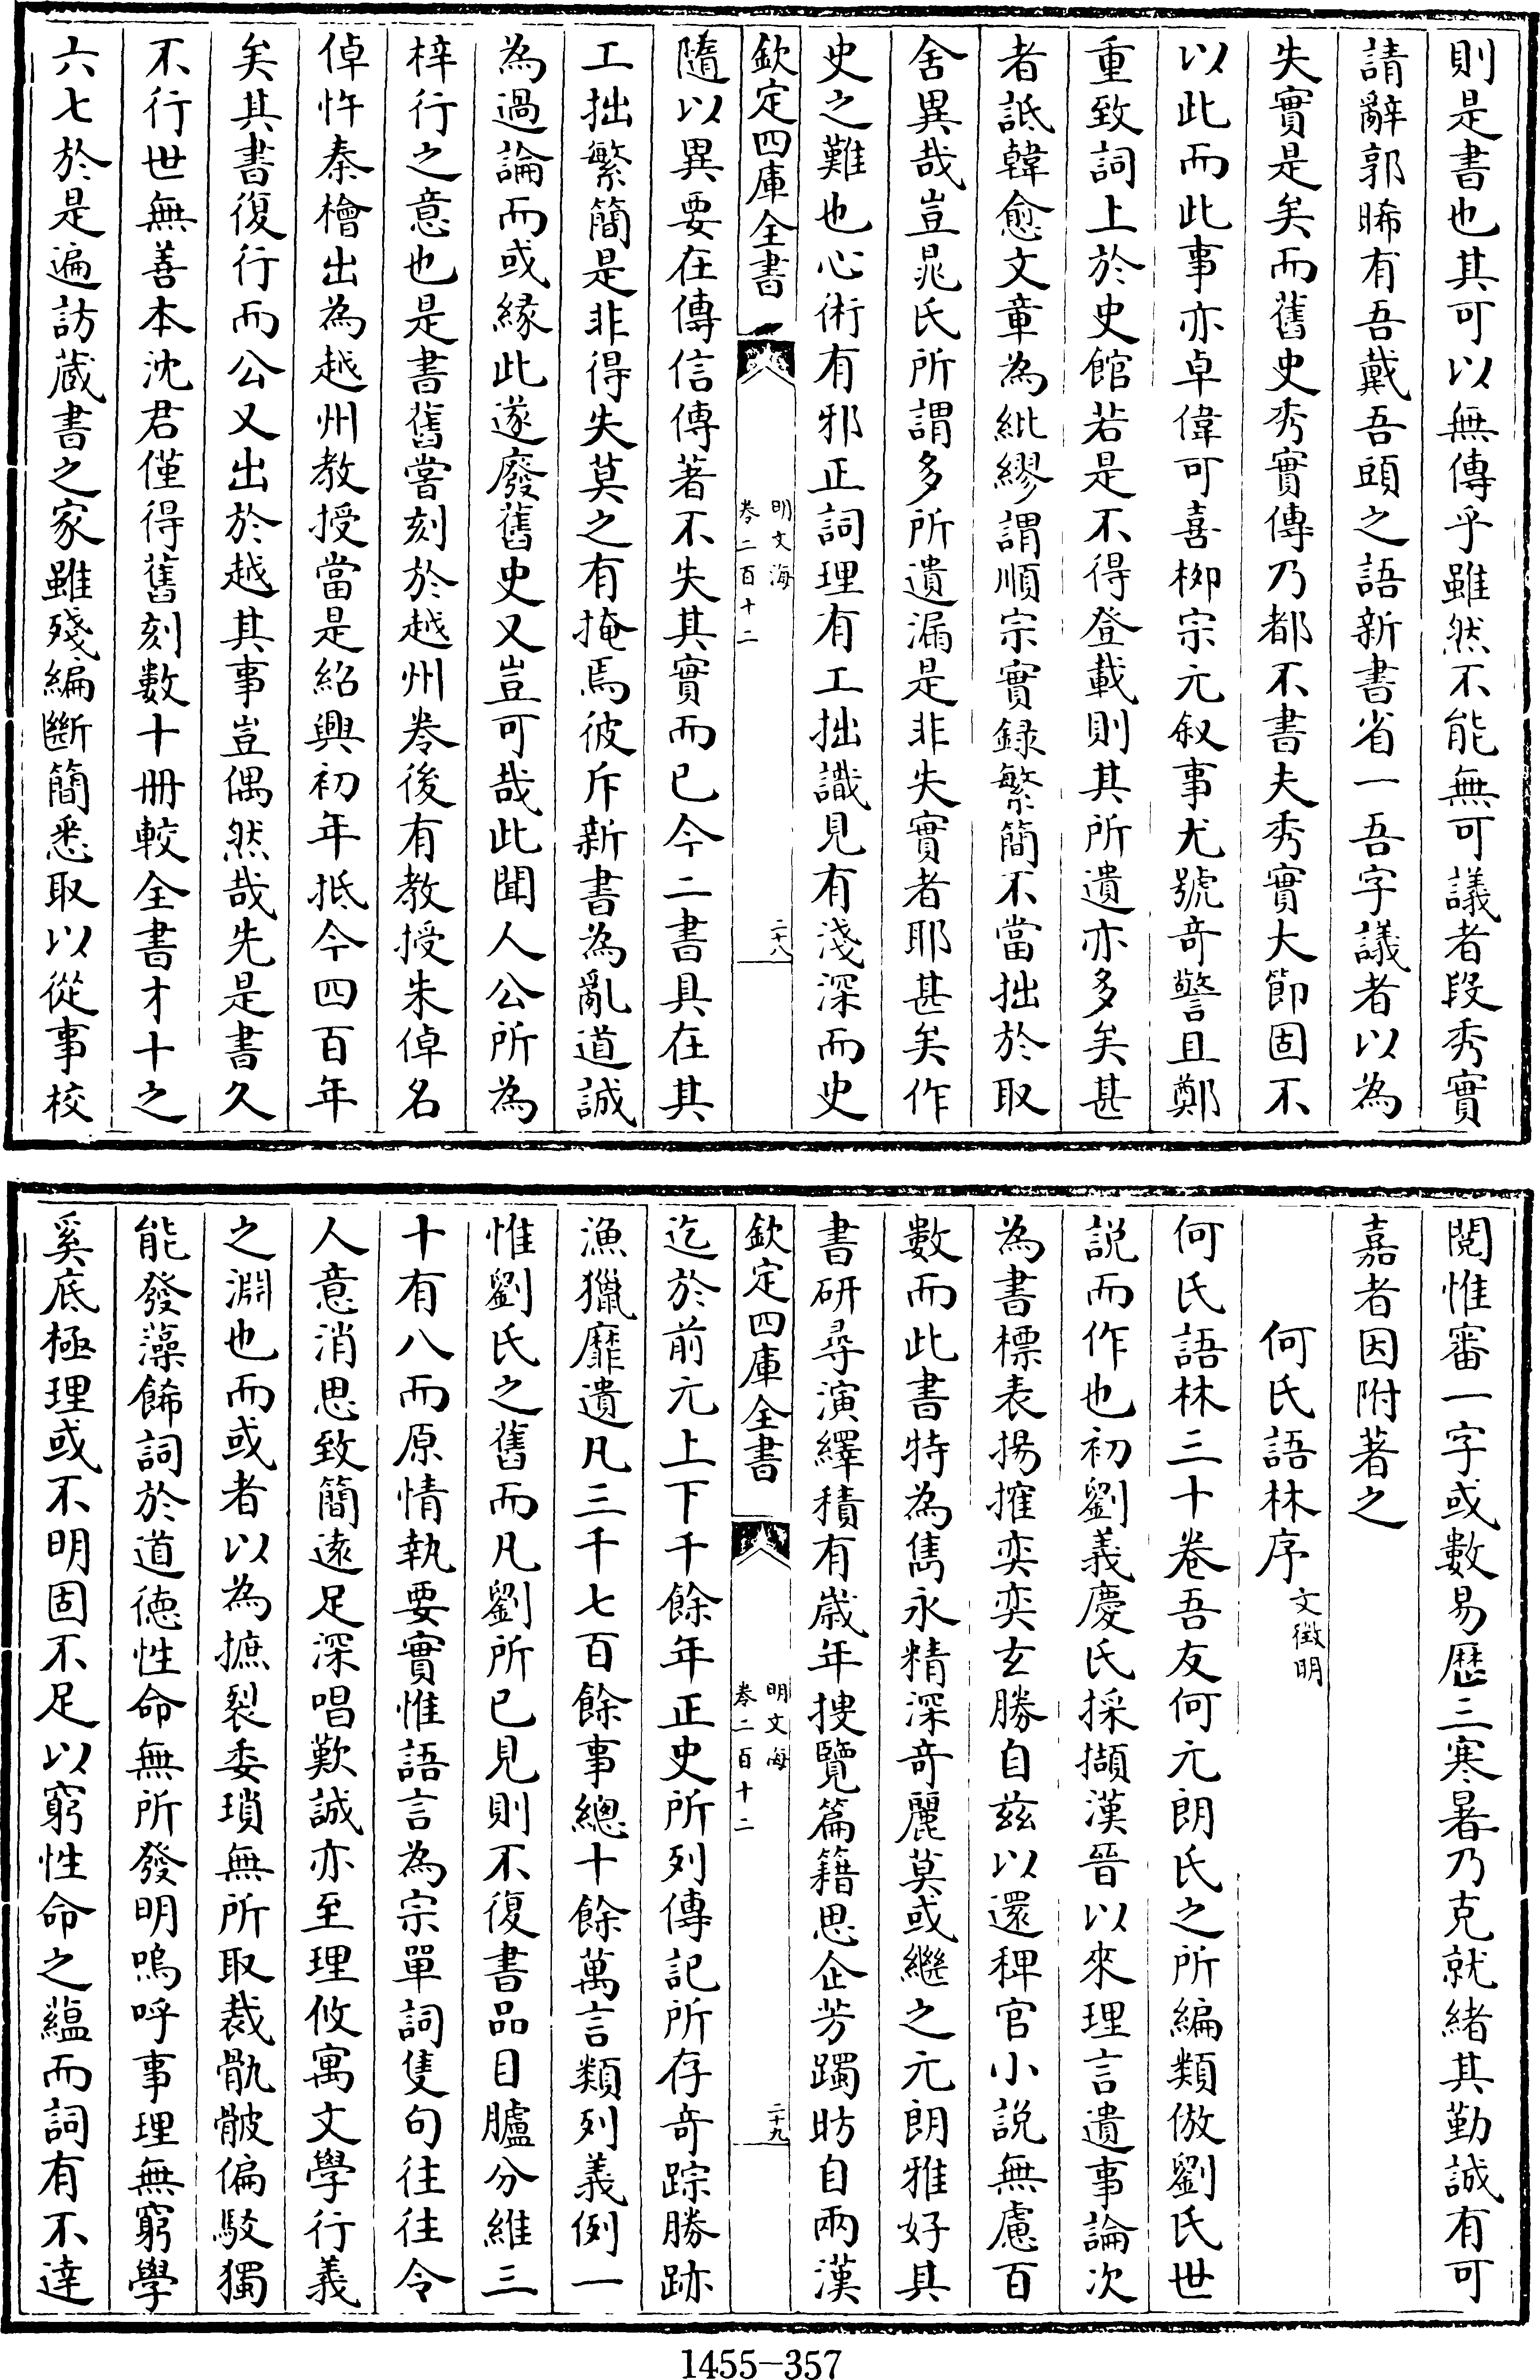 則是書也其可以無傳乎雖然不能無可議者段秀實
請辭郭晞有吾戴吾頭之語新書省一吾字議者以為
失實是矣而舊史秀實傳乃都不書夫秀實大節固不
以此而此事亦卓偉可喜栁宗元叙事尤號竒警且鄭
重致詞上於史館若是不得登載則其所遺亦多矣甚
者詆韓愈文章為紕繆謂順宗實録繁簡不當拙於取
舍異哉豈晁氏所謂多所遺漏是非失實者耶甚矣作
史之難也心術有邪正詞理有工拙識見有淺深而史
欽定四庫全書
明文海
卷二百十二
二十八
隨以異要在傳信傳著不失其實而已今二書具在其
工拙繁簡是非得失莫之有掩焉彼斥新書為亂道誠
為過論而或緣此遂廢舊史又豈可哉此聞人公所為
梓行之意也是書舊嘗刻於越州卷後有教授朱倬名
倬忤秦檜出為越州教授當是紹興初年抵今四百年
矣其書復行而公又出於越其事豈偶然哉先是書久
不行世無善本沈君僅得舊刻數十冊較全書才十之
六七於是遍訪蔵書之家雖殘編斷簡悉取以從事校
閱惟審一字或數易歷三寒暑乃克就緒其勤誠有可
嘉者因附著之
何氏語林序 文徵明
何氏語林三十卷吾友何元朗氏之所編類倣劉氏世
説而作也初劉義慶氏採擷漢晉以來理言遺事論次
為書標表揚搉奕奕玄勝自兹以還稗官小説無慮百
數而此書特為雋永精深竒麗莫或繼之元朗雅好其
書研尋演繹積有歳年搜覽篇籍思企芳躅昉自兩漢
欽定四庫全書
明文海
卷二百十二
二十九
迄於前元上下千餘年正史所列傳記所存竒踪勝跡
漁獵靡遺凡三千七百餘事總十餘萬言類列義例一
惟劉氏之舊而凡劉所已見則不復書品目臚分維三
十有八而原情執要實惟語言為宗單詞隻句往往令
人意消思致簡遠足深唱歎誠亦至理攸寓文學行義
之淵也而或者以為摭裂委瑣無所取裁骫骳偏駁獨
能發藻飾詞於道德性命無所發明嗚呼事理無窮學
奚底極理或不明固不足以窮性命之藴而詞有不達
1455-357